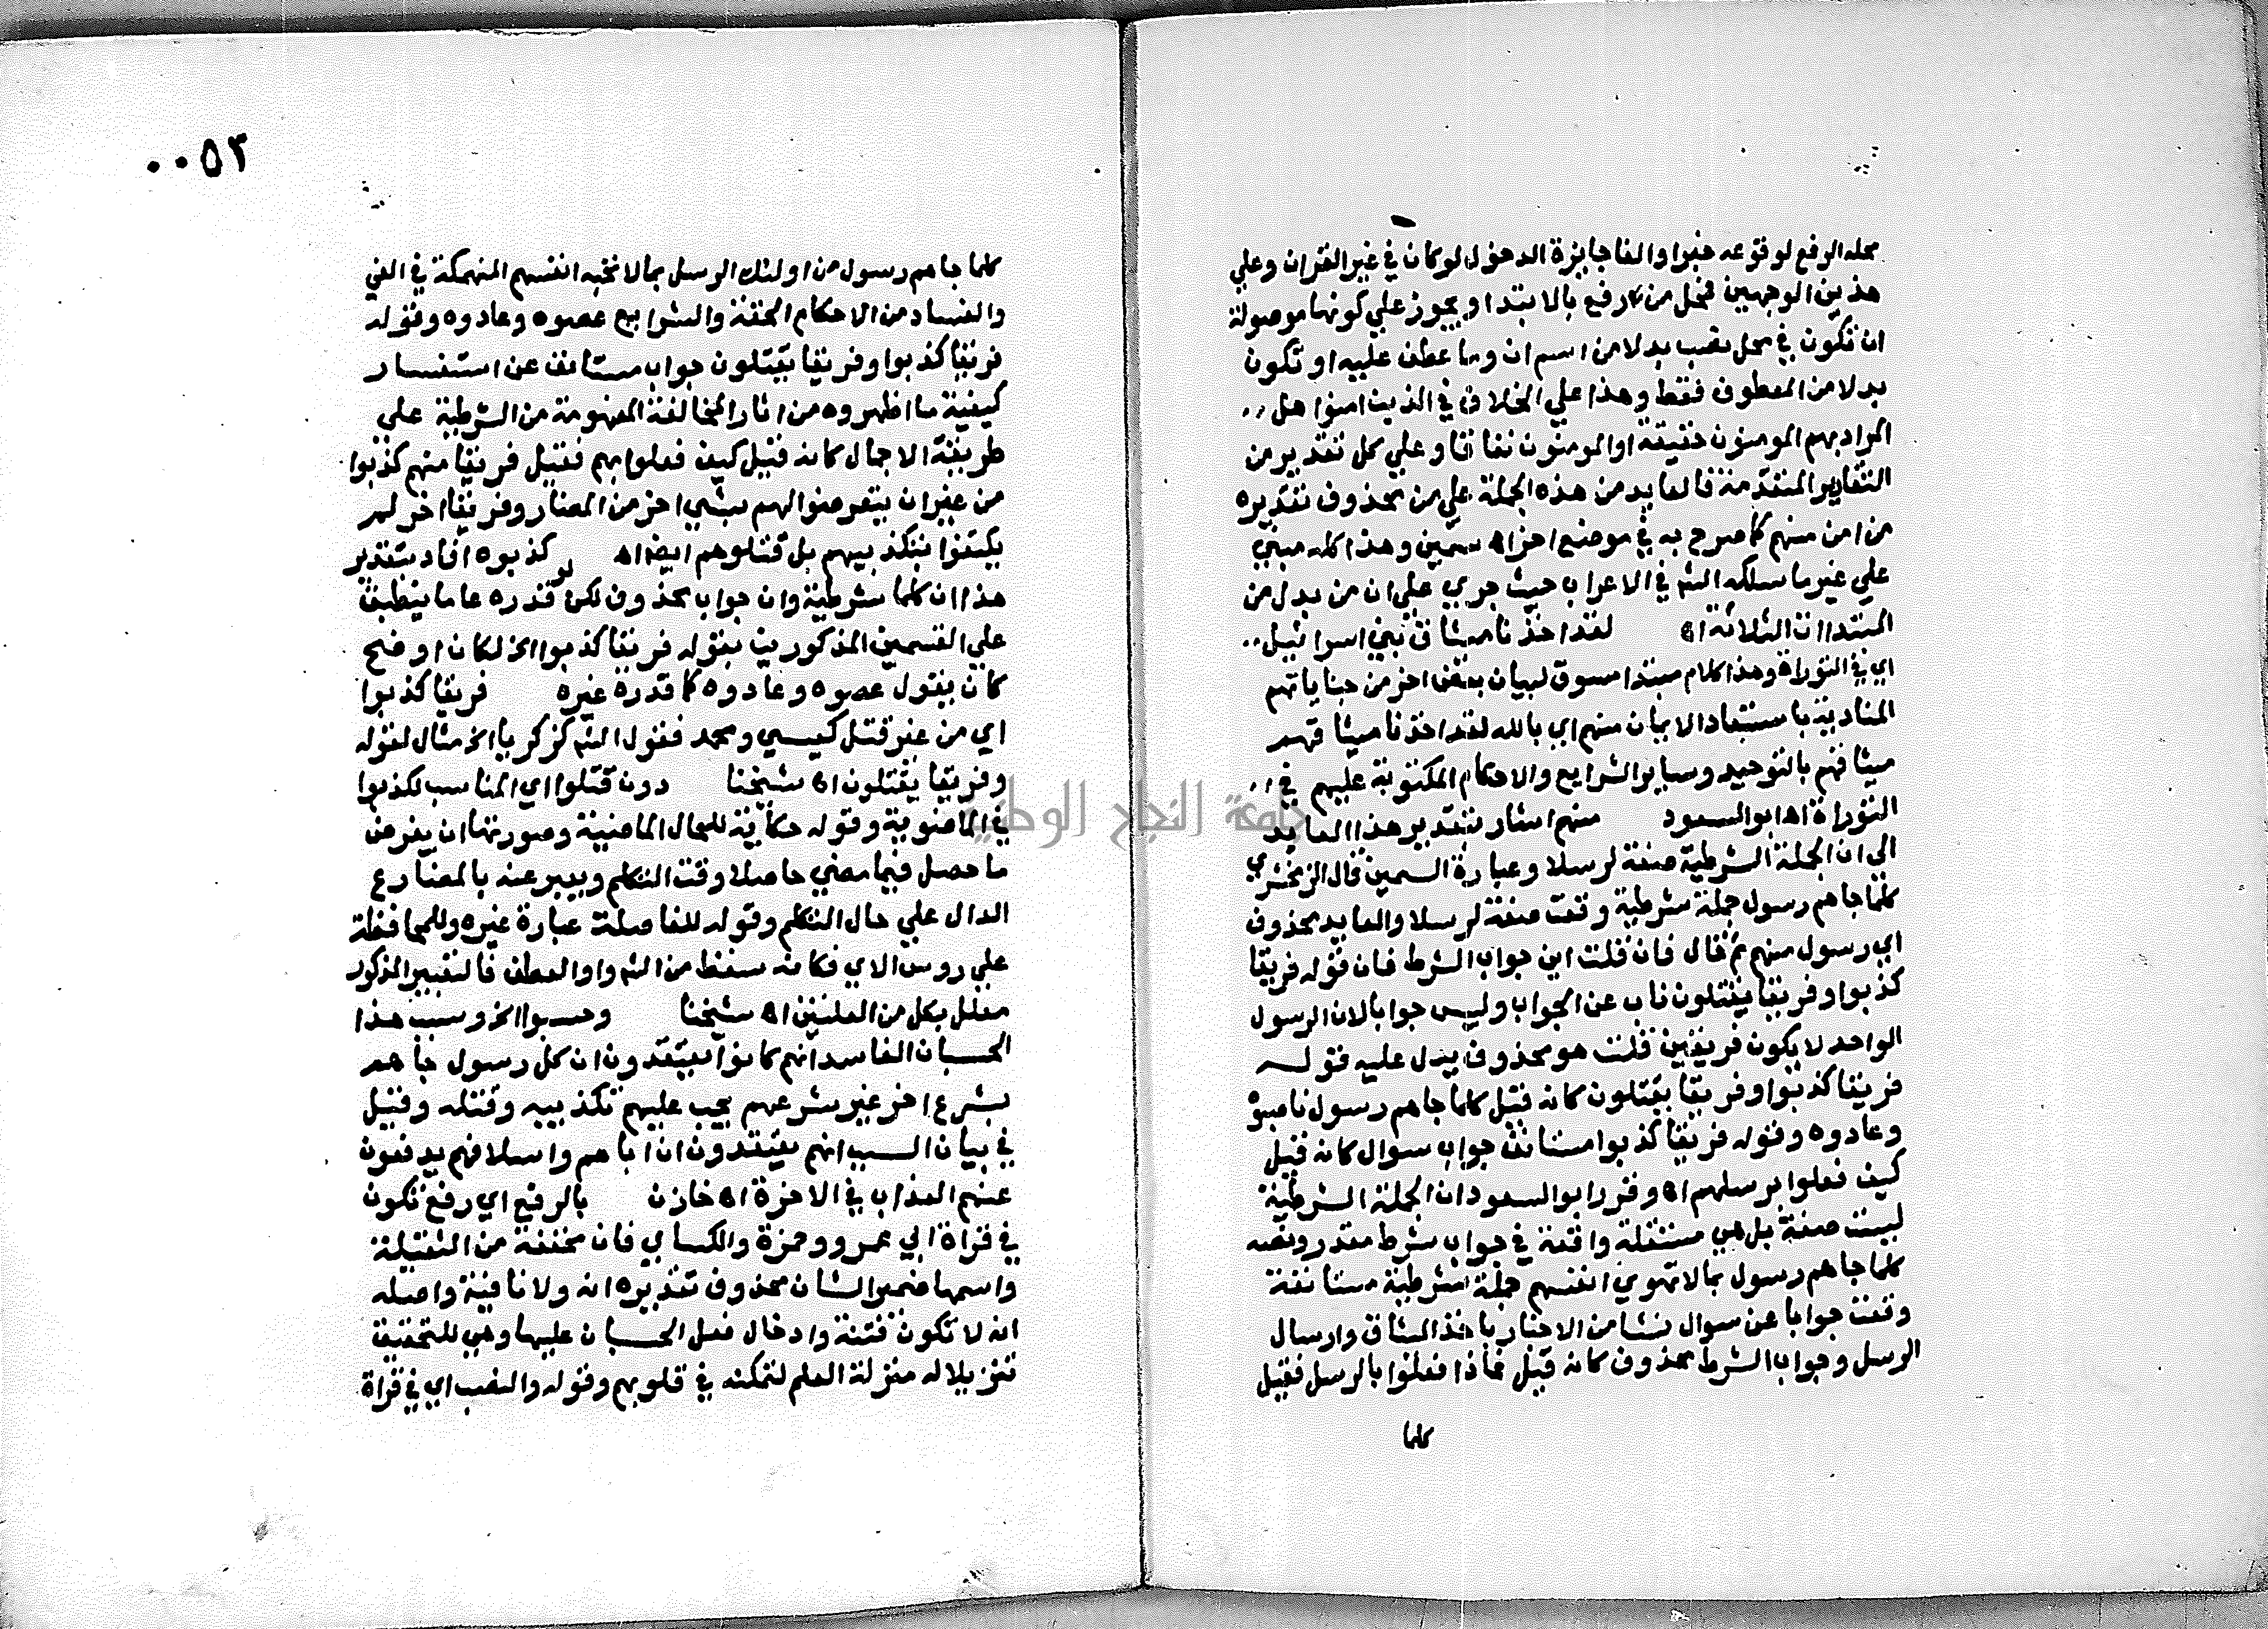 محله الرفع لوقوعه خبرا والفا جايزة الدخول لو كان في غير القران وعلي
هذين الوجهين فمحل من رفع بالابتدا ويجوز علي كونها موصولة
ان تكون في محل نصب بدلا من اسم ان وما عطف عليه او تكون
بدلا من المعطوف فقط وهذا علي الخلاف في الذين امنوا هل
المراد بهم المومنون حقيقة او المومنون نفاقا وعلي كل تقدير من
التقادير المتقدمة فالعايد من هذه الجملة علي من محذوف تقديره
من امن منهم كما صرح به في موضع اخر اه سمين وهذا كله مبني
علي غير ما سلكه الشم في الاعراب حيث جري علي ان من بدل من
المبتدات الثلاثة اه لقد اخذنا ميثاق بني اسرائيل
اي في التوراة وهذا كلام مبتدا مسوق لبيان بعض اخر من جناياتهم
المنادية باستبعاد الايمان منهم اي بالله لقد اخذنا ميثاقهم
ميثاقهم بالتوحيد وساير الشرايع والاحكام المكتوبة عليهم في
التوراة اه ابو السعود منهم اشار بتقدير هذا العايد
الي ان الجملة الشرطية صفة لرسلا وعبارة السمين قال الزمخشري
كلما جاهم رسول جملة شرطية وقعت صفة لرسلا والعايد محذوف
اي رسول منهم ثم قال فان قلت اين جواب الشرط فان قوله فريقا
كذبوا وفريقا يقتلون ناب عن الجواب وليس جوابا لان الرسول
الواحد لا يكون فريقين قلت هو محذوف يدل عليه قوله
فريقا كذبوا وفريقا يقتلون كانه قيل كلما جاهم رسول ناصبوه
وعادوه وقوله فريقا كذبوا مستانف جواب سوال كانه قيل
كيف فعلوا برسلهم اه وقرر ابو السعود ان الجملة الشرطية
ليست صفة بل هي مستقلة واقعة في جواب شرط مقدر ونصه
كلما جاهم رسول بما لا تهوي انفسهم جملة شرطية مستانفة
وقعت جوابا عن سوال نشا من الاخبار باخذ الميثاق وارسال
الرسل وجواب الشرط محذوف كانه قيل فماذا فعلوا بالرسل فقيل
كلما
٠٠٥٣
كلما جاهم رسول من اولئك الرسل بما لا تحبه انفسهم المنهمكة في الغي
والفساد من الاحكام الحقة والشرايع عصوه وعادوه وقوله
فريقا كذبوا وفريقا يقتلون جواب مستانف عن استفسار
كيفية ما اظهروه من اثار المخالفة المفهومة من الشرطية علي
طريقة الاجمال كانه قيل كيف فعلوا بهم فقيل فريقا منهم كذبوا
من غير ان يتعرضوا لهم بشي اخر من المضار وفريقا اخر لم
يكتفوا بتكذيبهم بل قتلوهم ايضا اه كذبوه افاد بتقدير
هذا ان كلما شرطية وان جواب محذوف لكن لو قدره عاما ينطبق
علي القسمين المذكورين بقوله فريقا كذبوا الخ لكان اوضح
كان يقول عصوه وعادوه كما قدره غيره فريقا كذبوا
اي من غير قتل كعيسي ومحمد فقول الشم كزكريا الخ مثال لقوله
وفريقا يقتلون اه شيخنا دون قتلوا اي المناسب لكذبوا
في الماضوية وقوله حكاية للحال الماضية وصورتها ان يفرض
ما حصل فيما مضي حاصلا وقت التكلم ويعبر عنه بالمضارع
الدال علي حال التكلم وقوله للفاصلة عبارة غيره وللمحافظة
علي روس الاي فكانه سقط من الشم واو العطف فالتعبير المذكور
معلل بكل من العلتين اه شيخنا وحسبوا الخ وسبب هذا
الحسبان الفاسد انهم كانوا يعتقدون ان كل رسول جاهم
بشرع اخر غير شرعهم يجب عليهم تكذيبه وقتله وقيل
في بيان السبب انهم يعتقدون ان اباهم واسلافهم يدفعون
عنهم العذاب في الاخرة اه خازن بالرفع اي رفع تكون
في قراة ابي عمرو وحمزة والكساي فان مخففة من الثقيلة
واسمها ضمير الشان محذوف تقديره انه ولا نافية واصله
انه لا تكون فتنة وادخال فعل الحسبان عليها وهي للتحقيق
تنزيلا له منزلة العلم لتمكنه في قلوبهم وقوله والنصب اي في قراة
جامعة النجاح الوطنية